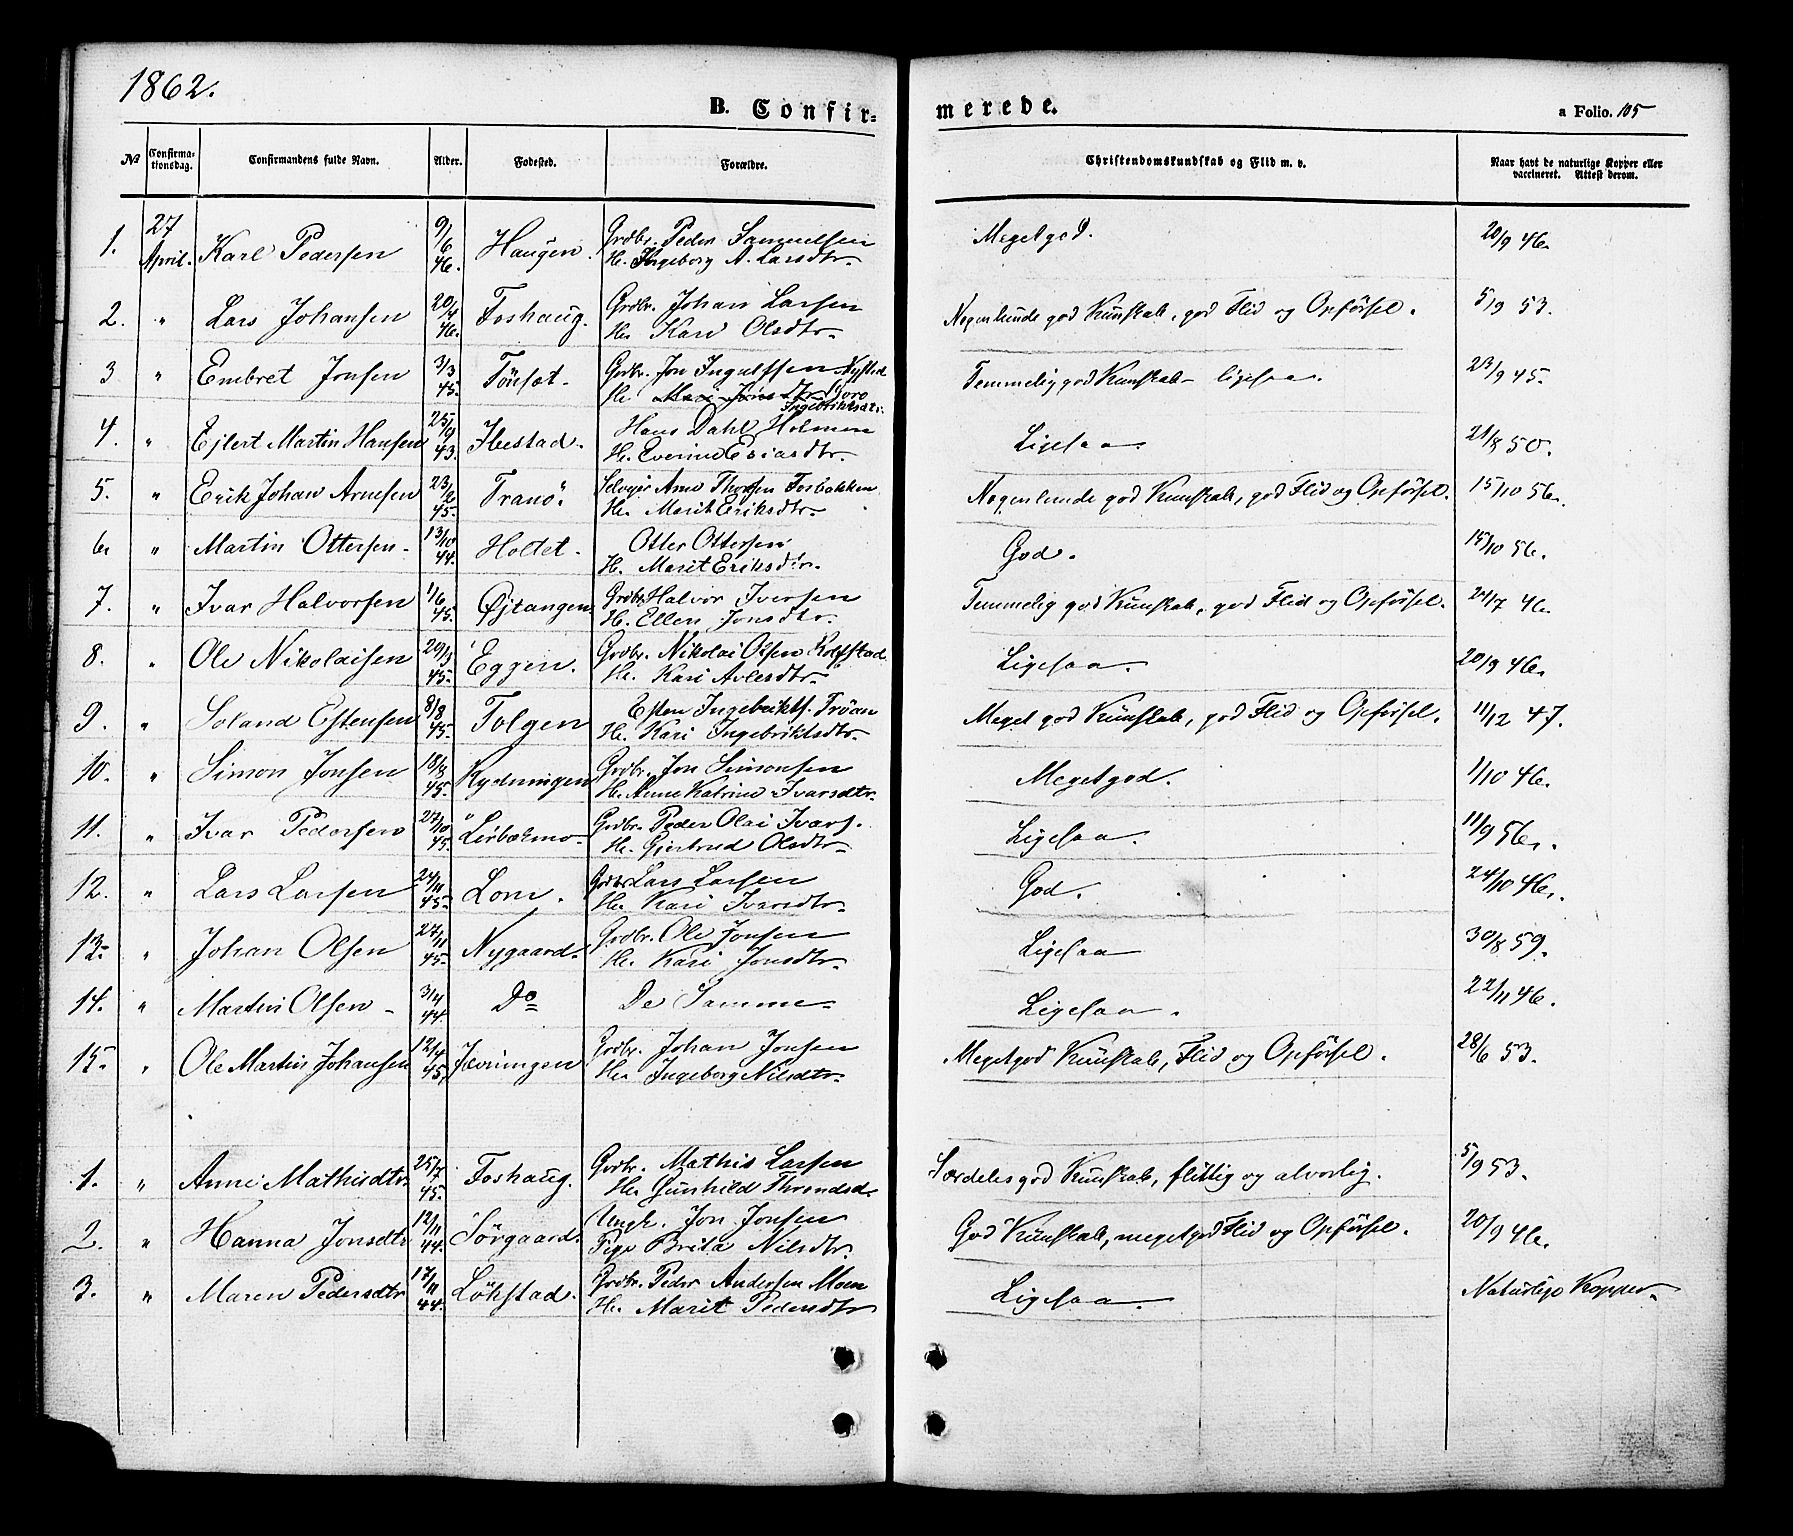 1862.
B. Confir=
merede.
a Folio. 105
No
Confirma-
tionsdag.
Confirmandens fulde Navn.
Alder.
Fødested.
Forældre.
Christendomskundskab og Flid m. v.
Naar havt de naturlige Kopper eller
vaccineret. Attest derom.
1. 27 April. Karl Pedersen 9/6 46. Haugen. Grdbr. Peder Samuelsen Megetgod. 20/9 46.
H. Ingeborg A. Larsdtr.
2. " Lars Johansen 20/4 46. Foshaug. Grdbr. Johan Larsen Nogenlunde god Kunskab, god Flid og Opførsel. 5/9 53.
H. Kari Olsdtr.
3 " Embret Jonsen 3/3 45. Tönset. Grdbr. Jon Ingulfsen Nysted Temmelig god Kunskab - ligesaa. 23/9 45.
H. Goro
Ingebriktsdtr.
4. " Ejlert Martin Hansen 25/9 43. Ibestad. Hans Dahl Holmen Ligesaa 21/8 50.
H. Everine Esiasdtr.
5. " Erik Johan Arnesen 23/6 45. Tranö. Selveier Arne Thorsen Fosbakken Nogenlunde god Kunskab, god Flid og Opførsel. 15/10 56.
H. Marit Eriksdtr.
6. " Martin Ottersen 13/10 44. Holtet. Otter Ottersen God. 15/10 56.
H. Marit Eriksdtr.
7. " Ivar Halvorsen 1/6 45. Øjtangen Grdbr. Halvor Iversen Temmelig god Kunskab, god Flid og Opførsel. 24/7 46.
H. Ellen Jonsdtr.
8. " Ole Nikolaisen 20/3 45. Eggen. Grdbr. Nikolai Olsen Rolfstad Ligesaa. 20/9 46.
H. Kari
9. " Soland Estensen 8/8 45. Tolgen Esten Ingebrikts. Tröan Meget god Kunskab, god Flid og Opførsel. 11/12 47.
H. Kari Ingebriktsdtr.
10. " Simon Jonsen 18/8 45. Rydningen Grdbr. Jon Simonsen Megetgod. 1/10 46.
H. Anne Katrine Ivarsdtr.
11. " Ivar Pedersen 27/10 45. Grdbr. Peder Olai Ivars. Ligesaa. 11/9 56.
H. Gjertrud Olsdtr.
12. " Lars Larsen 24/11 45. Lom. Grdbr Lars Larsen God. 24/10 46.
H. Kari Ivarsdtr.
13. " Johan Olsen 27/11 45. Nygaard. Grdbr. Ole Jonsen Ligesaa 30/8 59.
H. Kari Jonsdtr.
14. " Martin Olsen 3/4 44. Do De Samme Ligesaa. 22/11 46.
15. " Ole Martin Johansen 12/4 45. Jævningen Grdbr. Johan Jonsen Megetgod Kunskab, Flid og Opførsel. 28/6 53.
H. Ingeborg Nilsdtr.
1. " Anne Mathisdtr. 25/7 45. Foshaug. Grdbr. Mathis Larsen Særdeles god Kunskab, flittig og alvorlig. 5/9 53.
H. Gunhild Throndsd.
2. " Hanna Jonsdtr 12/11 44. Sörgaard. Ungk. Jon Jonsen God Kunskab, megetgod Flid og Opførsel. 20/9 46.
Pige Brita Nilsdtr.
3. " Maren Pedersdtr 17/11 44. Lökstad. Grdbr. Peder Andersen Moen Ligesaa. Naturlige Kopper.
H. Marit Pedersdtr